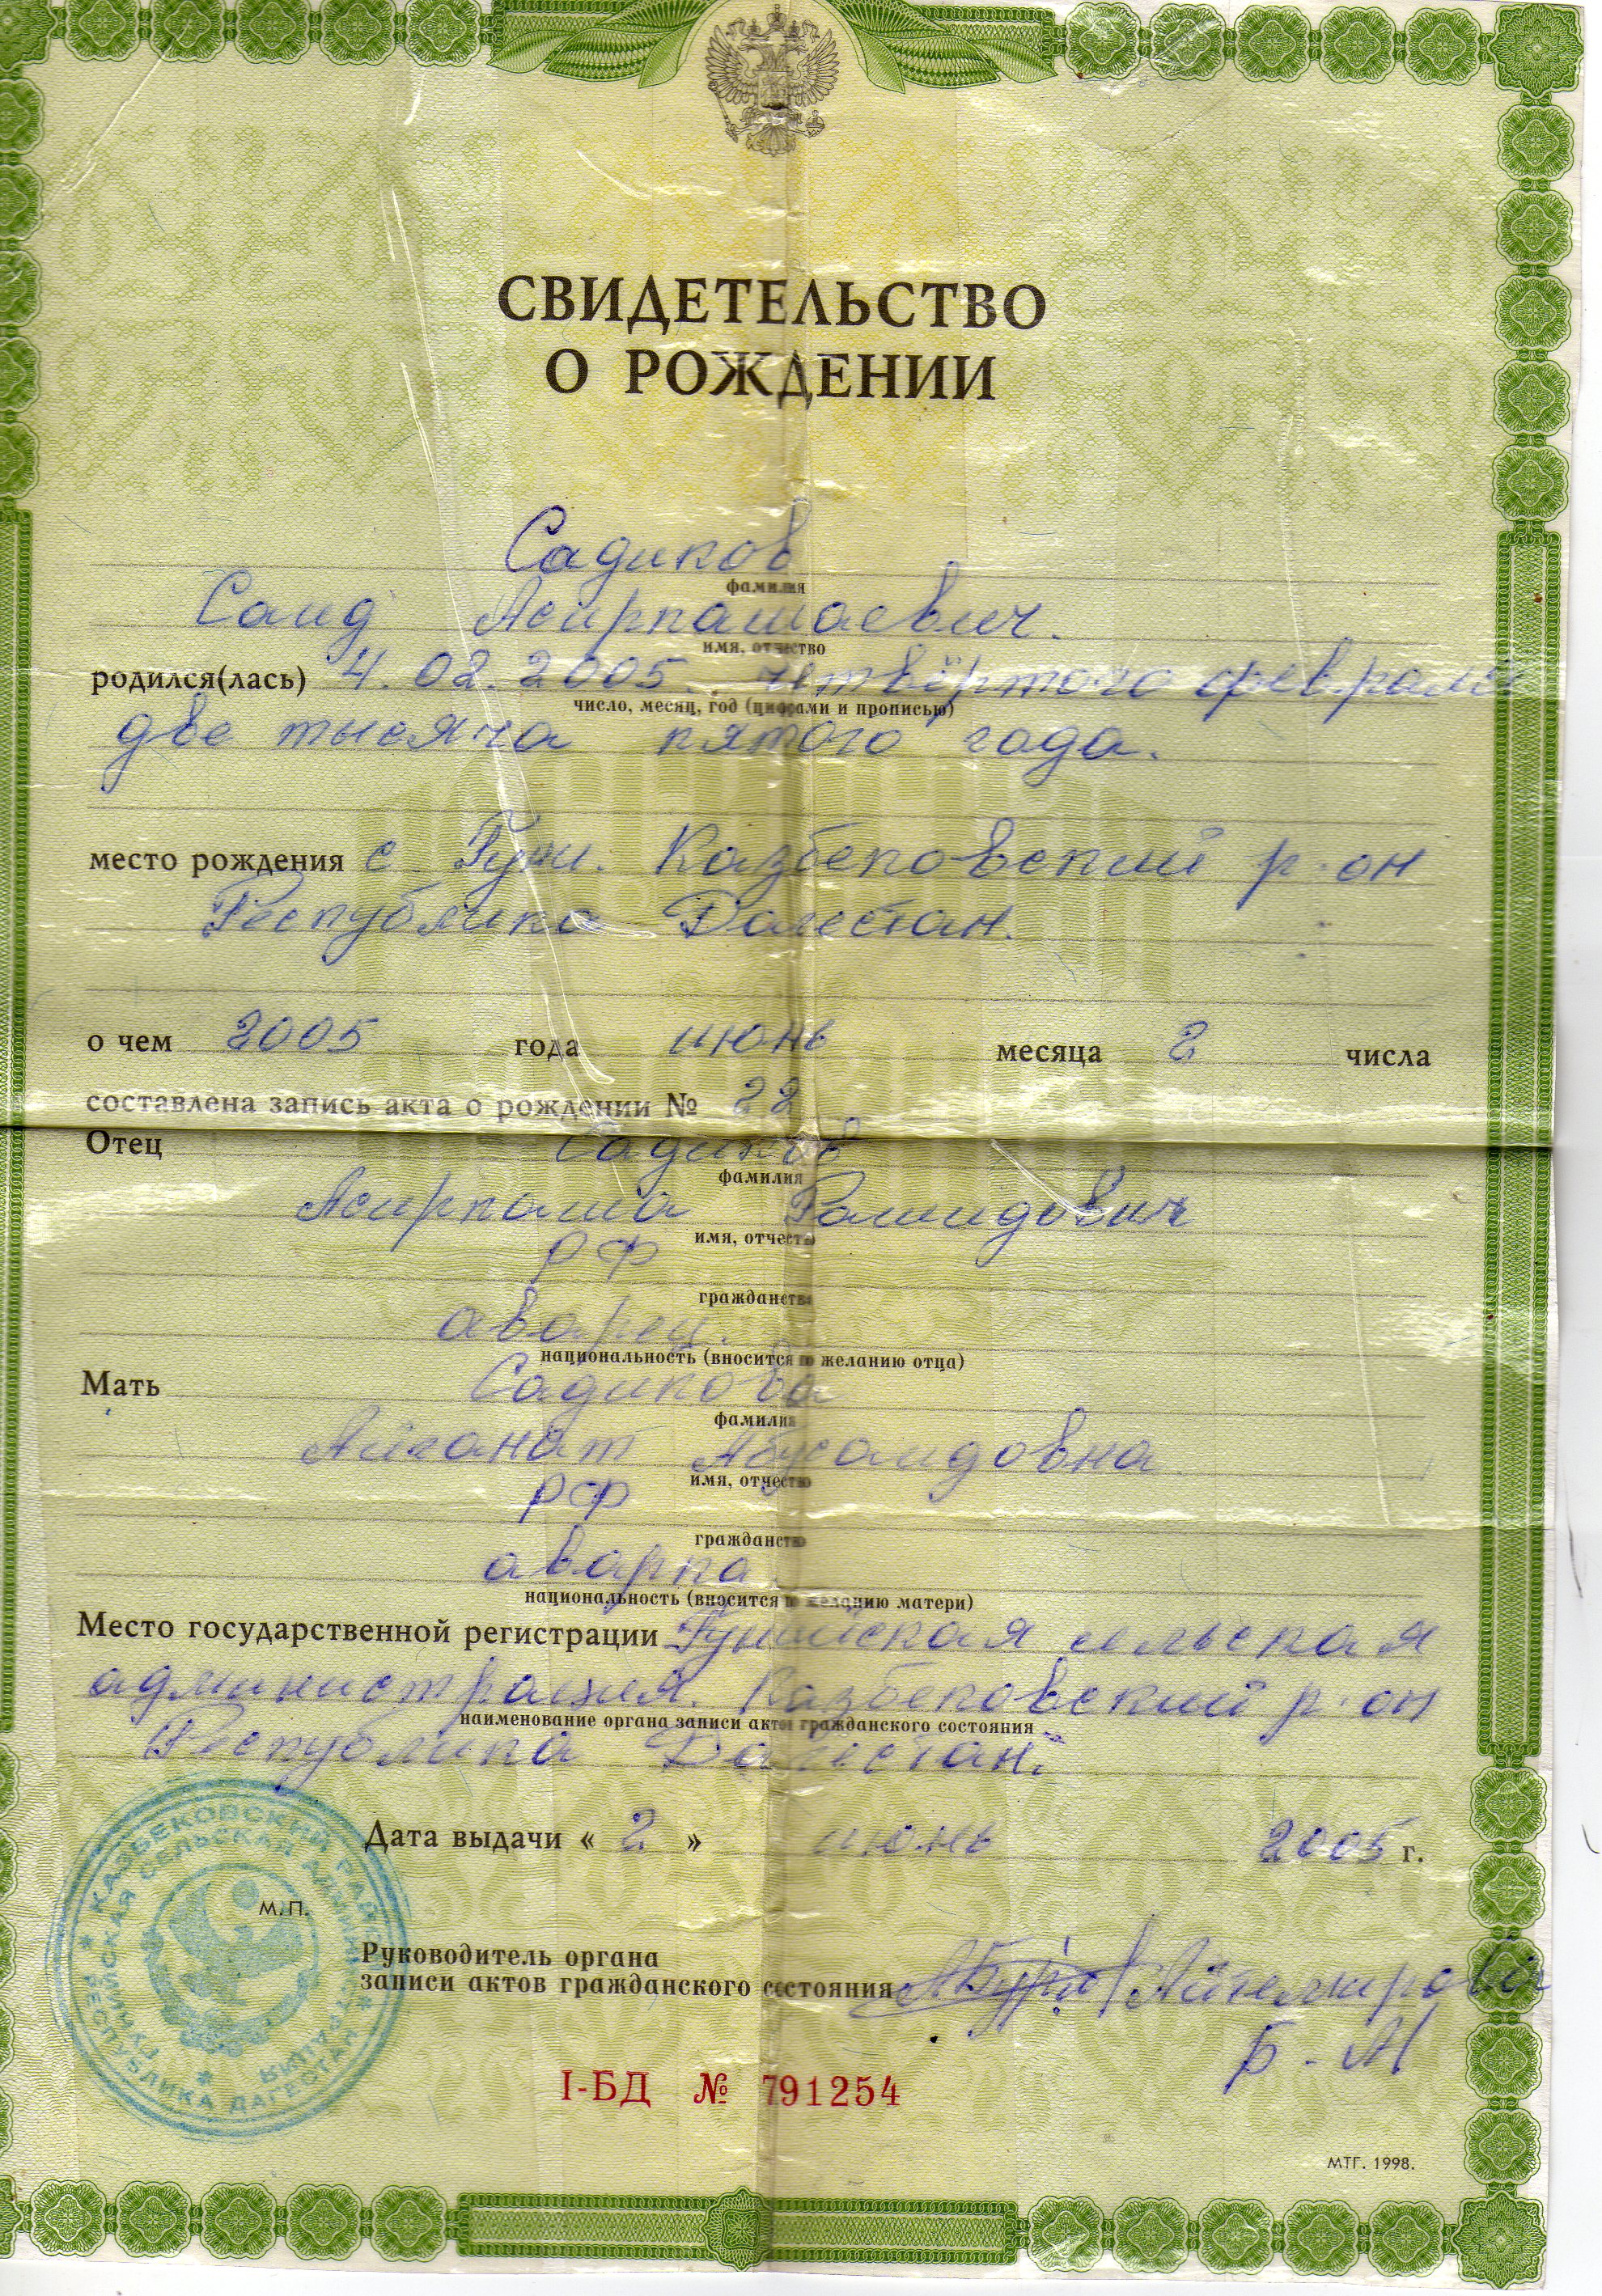 СВИДЕТЕЛЬСТВО
О РОЖДЕНИИ
Садиков
фамилия
Саид Асирпашаевич.
имя, отчество
родился(лась) 4.02.2005. четвёртого февраля
число, месяц, год (цифрами и прописью)
две тысяча пятого года.
место рождения с Гуни. Казбековский р-он
Республика Дагестан.
о чем 2005 года июнь месяца 2 числа
составлена запись акта о рождении № 22
Отец Садиков
фамилия
Асирпаша Рашидович
имя, отчество
РФ
гражданство
аварец.
национальность (вносится по желанию отца)
Мать Садикова
фамилия
Айганат Абусаидовна
имя, отчество
РФ
гражданство
аварка.
национальность (вносится по желанию матери)
Место государственной регистрации Гунийская сельская
администрация. Казбековский р-он
наименование органа записи актов гражданского состояния
Республика Дагестан.
Дата выдачи « 2 » июнь 2005 г.
М.П.
Руководитель органа
записи актов гражданского состояния
Б. М
КАЗБЕКОВСКИЙ РАЙОН
РЕСПУБЛИКА ДАГЕСТАН
ГУНИЙСКАЯ СЕЛЬСКАЯ АДМИНИСТРАЦИЯ
I-БД № 791254
МТГ. 1998.